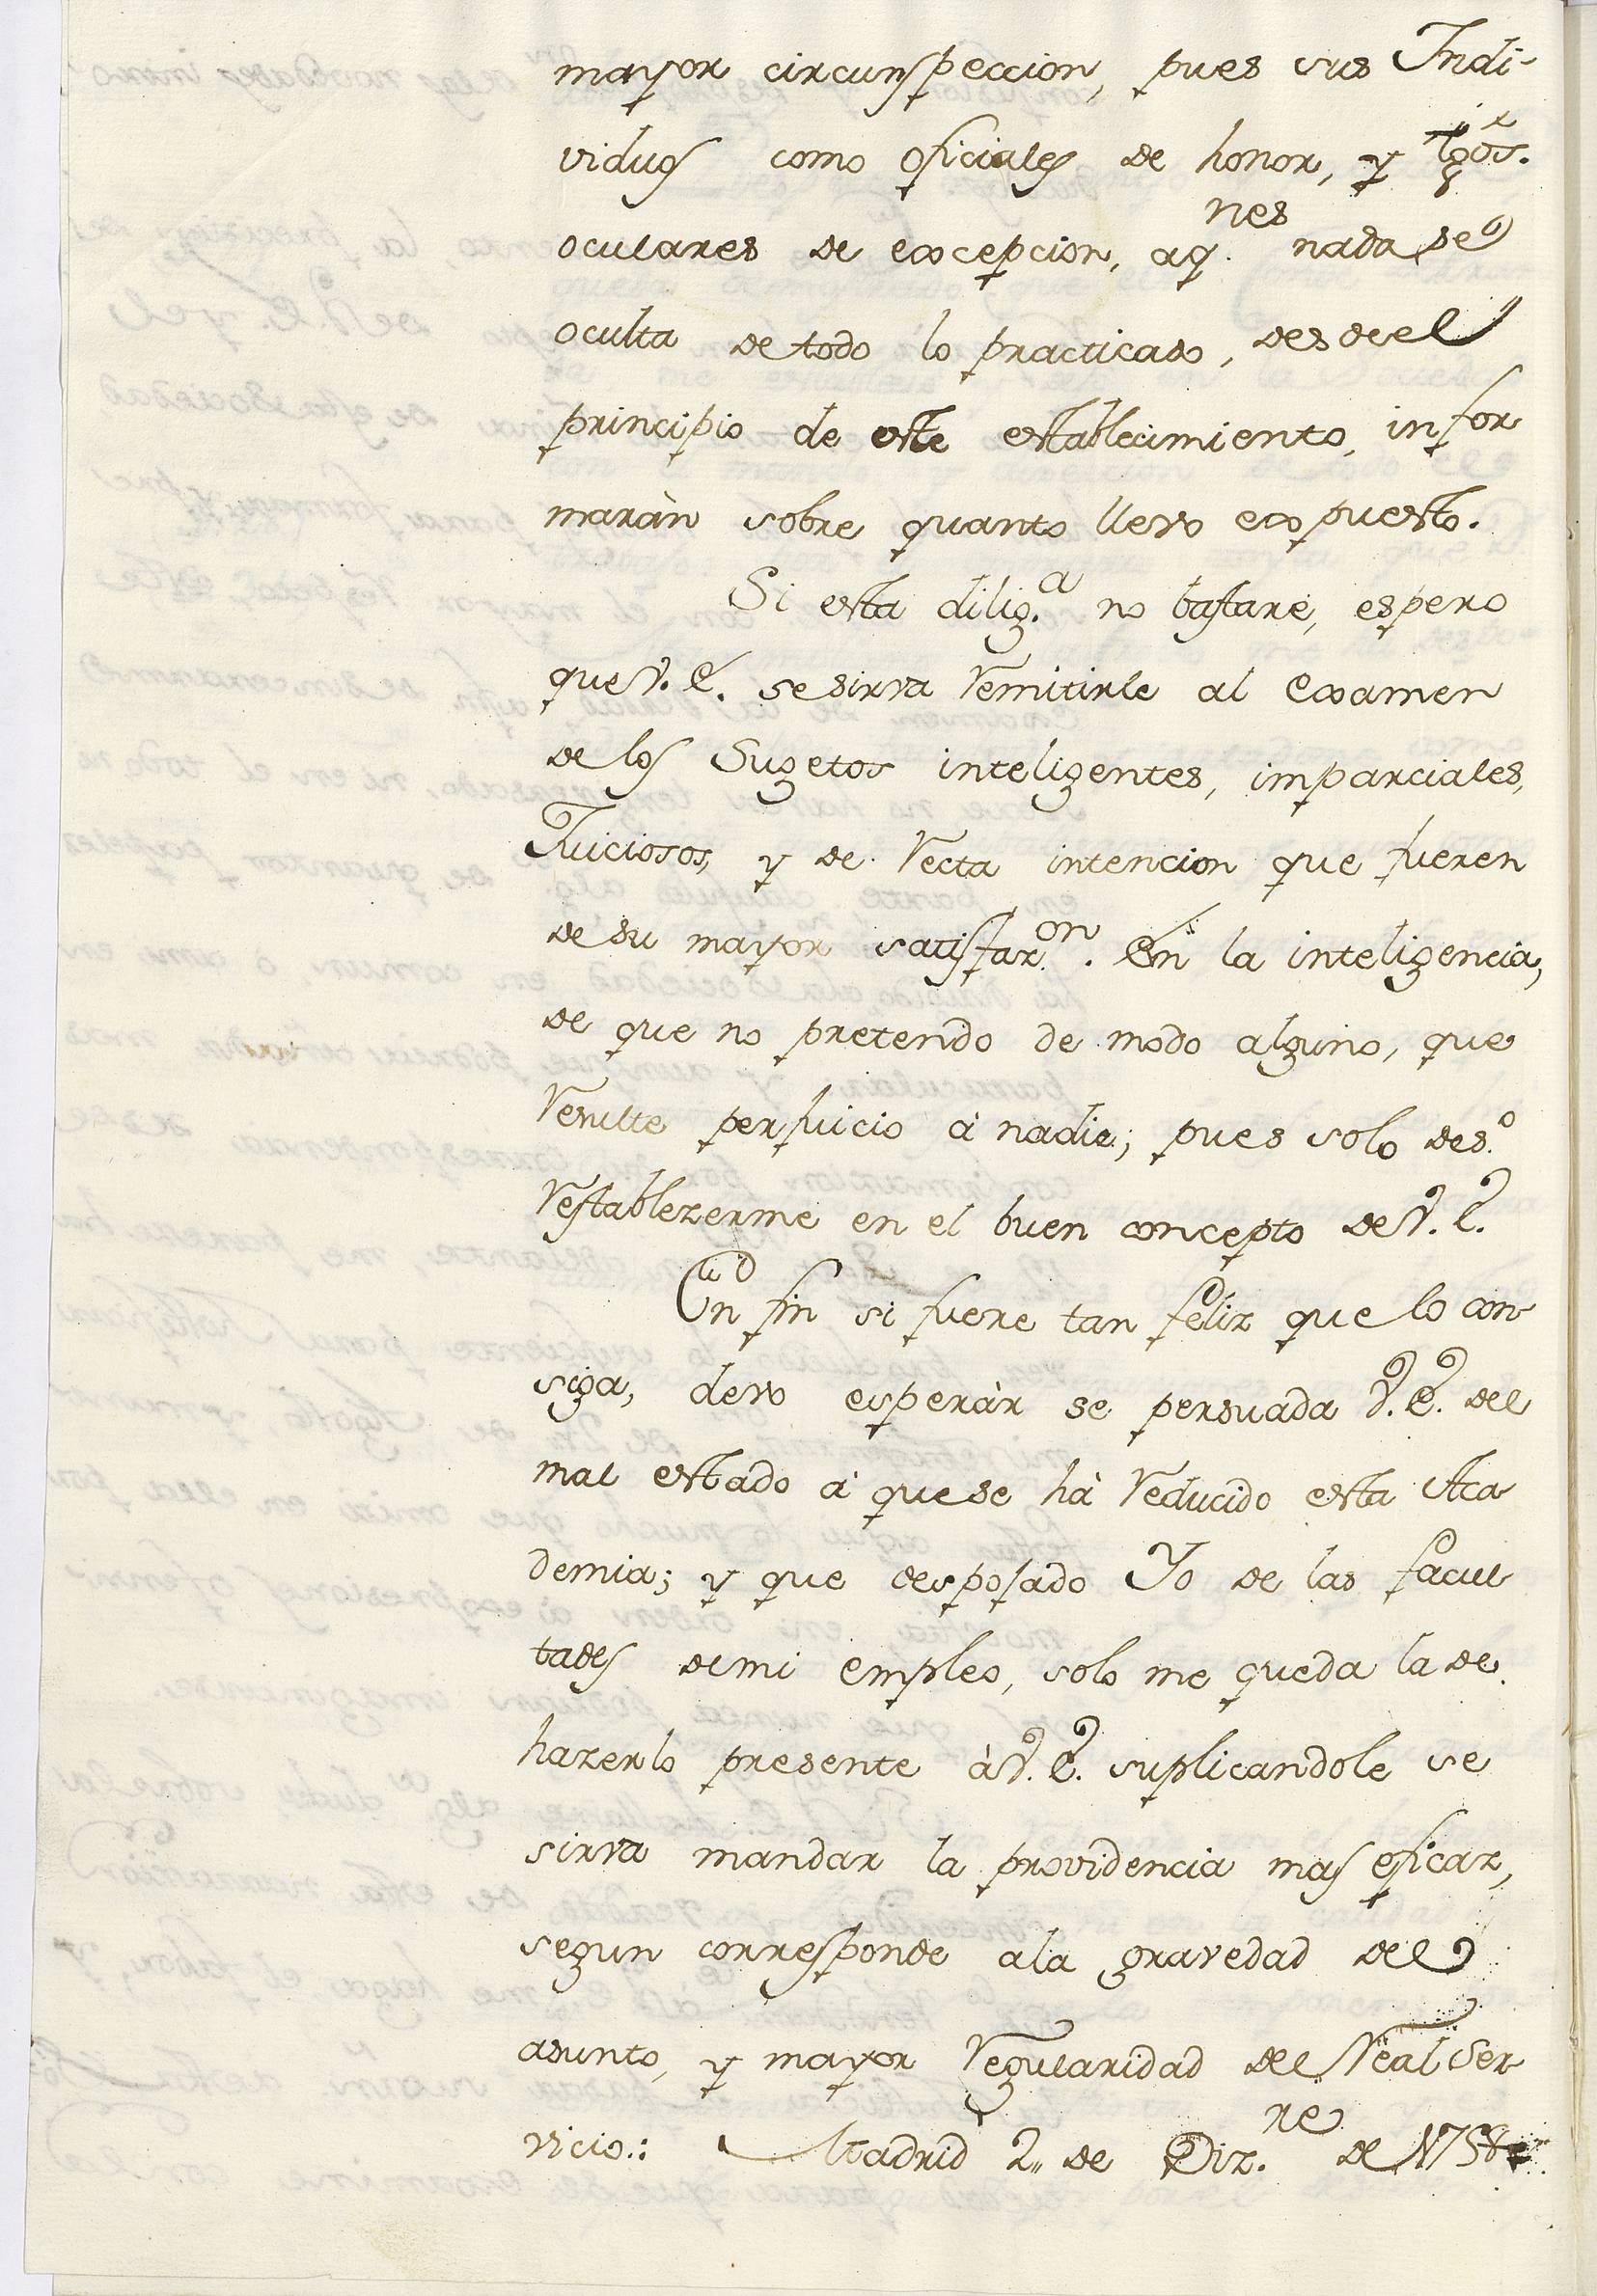 mayor circunspeccion, pues sus Indi-
viduos como oficiales de honor, y tgos.
oculares de excepcion, aq.nes nada se
oculta de todo lo practicado, desde el
principio de este establecimiento, infor
maràn sobre quanto llevo expuesto.
Si esta dilig.a no bastare, espero
que V. E. se sirva remitirle al examen
de los Sugetos inteligentes, imparciales,
Juiciosos, y de recta intencion que fueren
de su mayor satisfaz.on. En la inteligencia,
de que no pretendo de modo alguno, que
resulte perjuicio à nadie; pues solo des.o
restablezerme en el buen concepto de V. E.
En fin si fuere tan feliz que lo con
siga, devo esperàr se persuada V. E. del
mal estado à que se hà reducido esta Aca
demia; y que desposado Yo de las facul
tades de mi empleo, solo me queda la de
hazerlo presente à V. E. suplicandole se
sirva mandar la providencia mas eficaz,
segun corresponde a la gravedad del
asunto, y mayor regularidad del Real Ser
vicio.: Madrid 2,, de Diz.re de